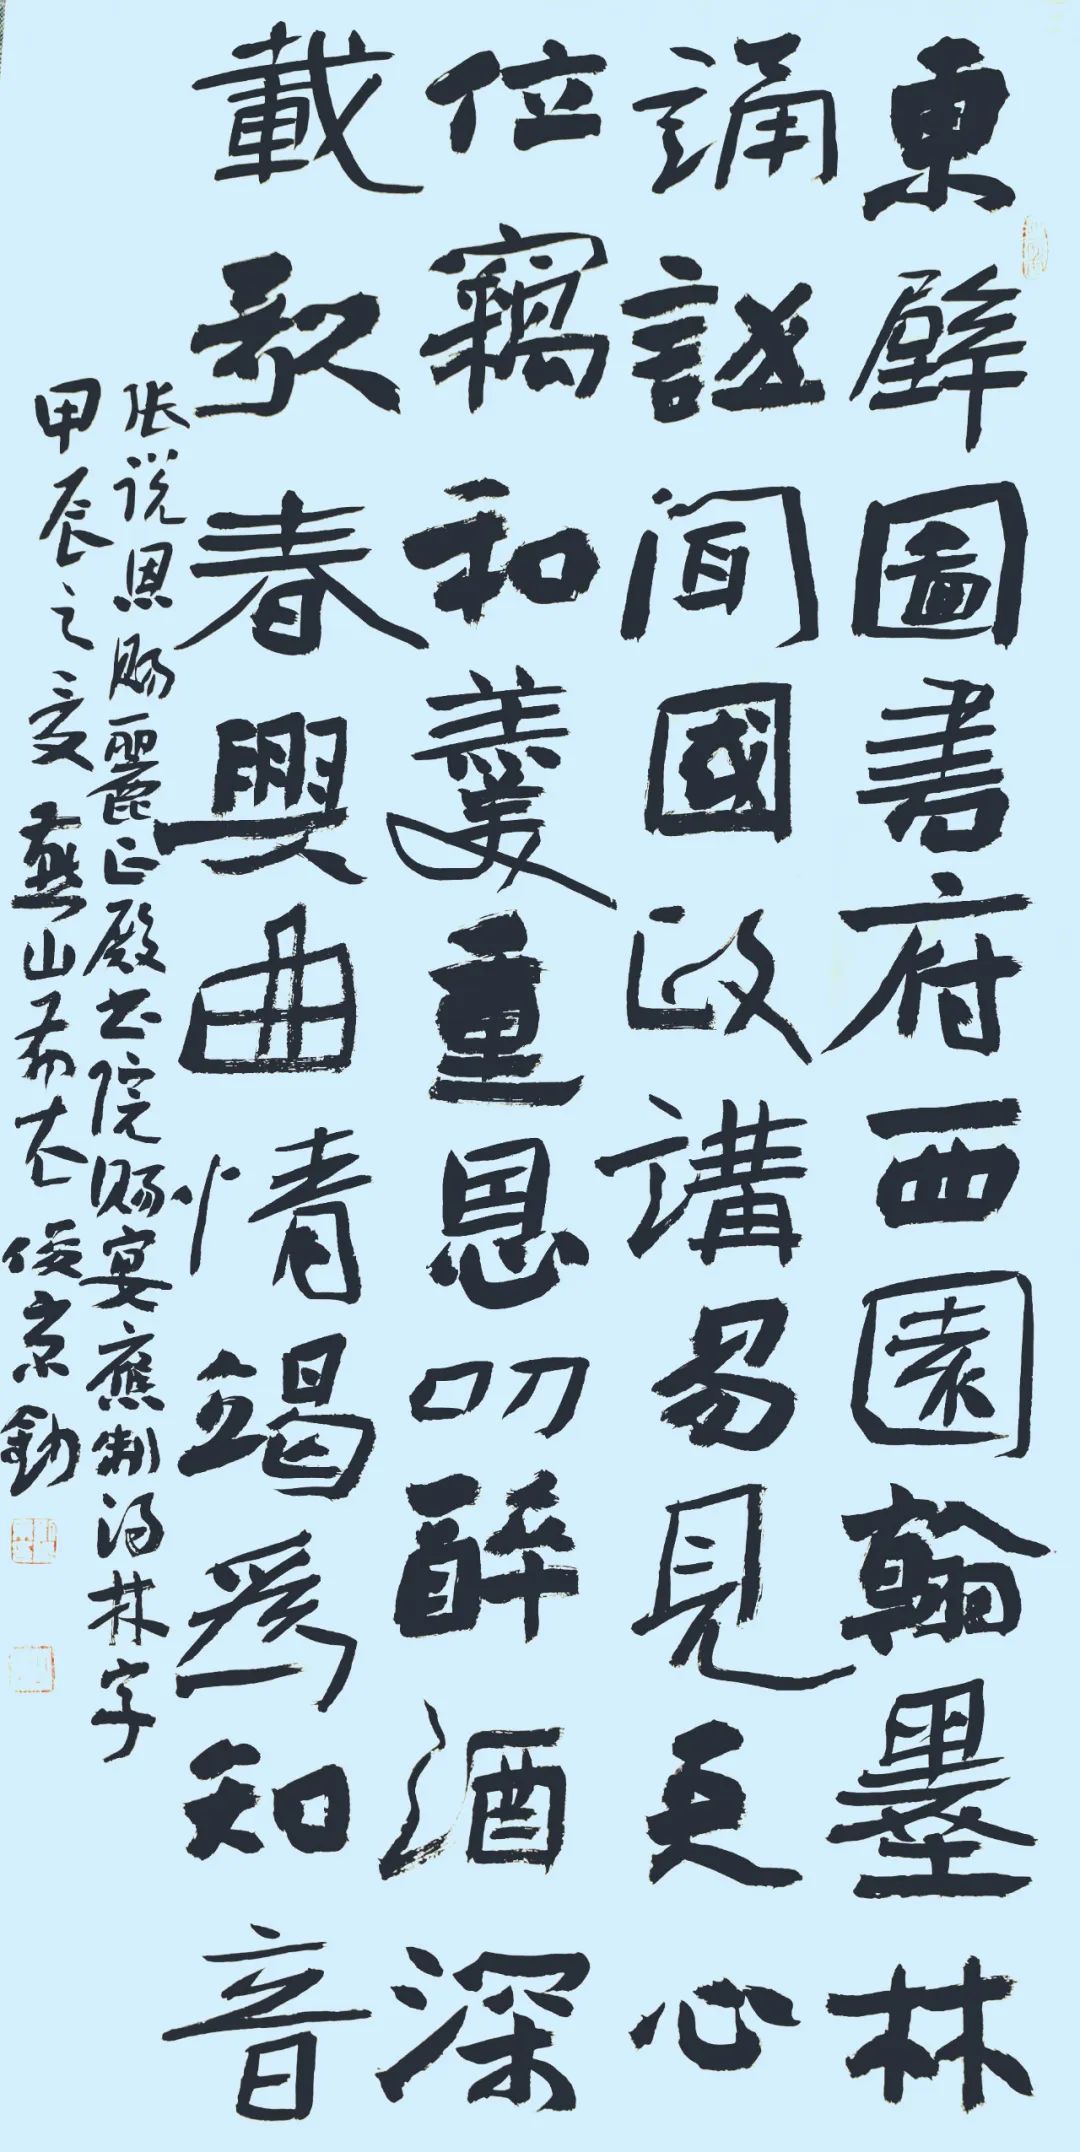 東壁圖書府西園翰墨林
誦詩聞國政講易見天心
位竊和羹重恩叨醉酒深
載歌春興曲情竭為知音
张说恩赐麗正殿书院赐宴應制得林字
甲辰之夏燕山布衣